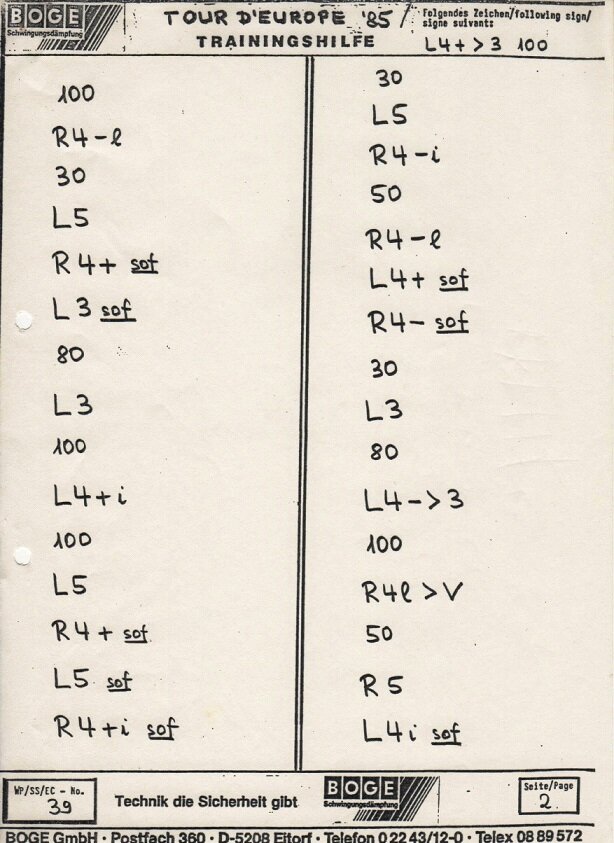 BOGE
Schwingungsdämpfung
TOUR D'EUROPE '85/
TRAININGSHILFE
Folgendes Zeichen/following sign/
signe suivant:
L4+ > 3 100
100
R4-l
30
L5
R4+ sof
L3 sof
80
L3
100
L4+i
100
L5
R4+ sof
L5 sof
R4+i sof
30
L5
R4-i
50
R4-l
L4+ sof
R4- sof
30
L3
80
L4->3
100
R4l >V
50
R5
L4i sof
WP/SS/EC - No.
39
Technik die Sicherheit gibt
BOGE
Schwingungsdämpfung
Seite/Page
2
BOGE GmbH · Postfach 360 · D-5208 Eitorf · Telefon 0 22 43/12-0 · Telex 08 89 572